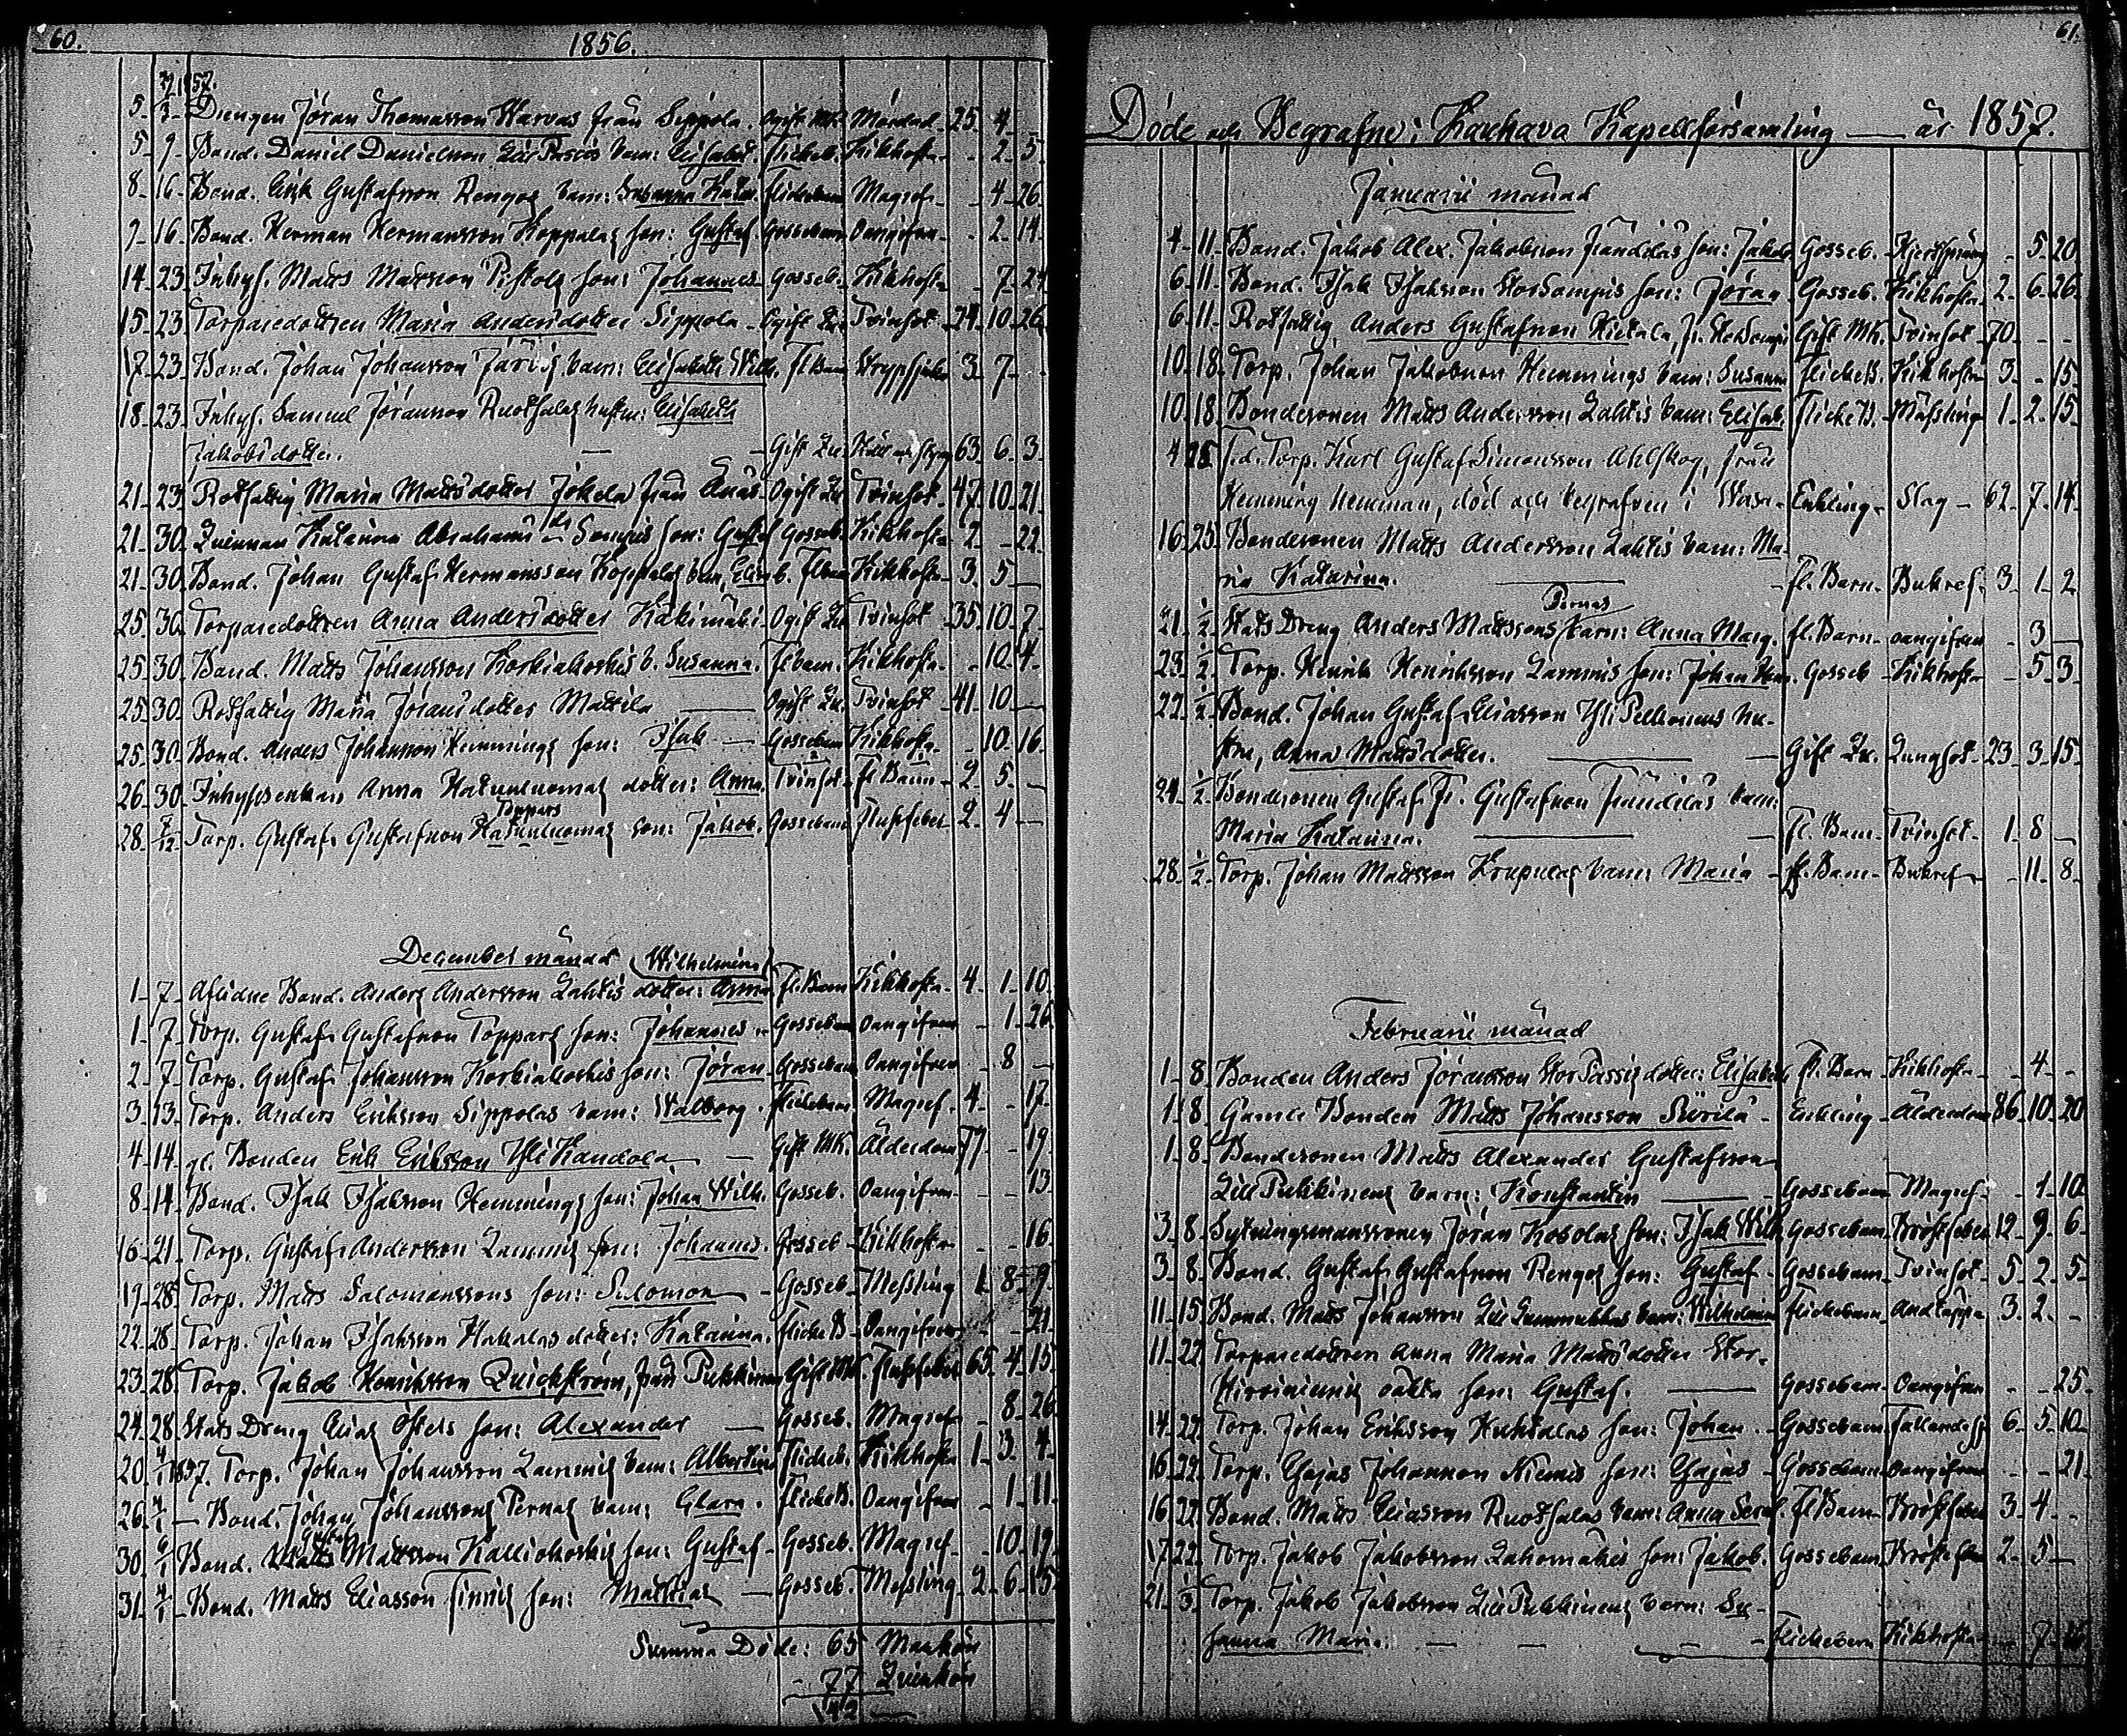 60.
1856.
5 Drengen Jöran Thomasson Harvas från Sippola. Ogift Mk. Mördad 25 4
5 9 Bond. Daniel Danielson Lill Passis barn: Elisabet. Flickeb. Kikhosta 2 5
8 16 Bond. Erik Gustafsson Rengos barn: Susanna Flickebarn Magref 4 26
9 16 Bond. Herman Hermansson Koppalas son: Gustaf Gossebarn Oangifven 2 14
14 23 Inhys. Matts Mattson Pistolas son: Johannes Gosseb. Kikhosta 7 24
15 23 Torparedottren Maria Andersdotter Sippola Ogift Qu. Tvinsot 24 10 26
17 23 Bond. Johan Johansson Järvis barn: Elisabeth Wilh. Fl Barn Strypsjuka 3 7
18 23 Inhys. Samuel Jöransson Ruotsalas hustru: Elisabeth
Jakobsdotter. Gift Qu. 63 6 3
21 23 Rotfattig Maria Mattsdotter Jokela från Ånäs Ogift Qu. Tvinsot 47 10 21
21 30 Quinnan Katarina Abrahams dr Sampis son: Gustaf Gosseb. Kikhosta 2 22
21 30 Bond. Johan Gustaf Hermansson Koppalas barn, Elisab. Fl barn Kikhosta 3 5
25 30 Torparedottren Anna Andersdotter Käkimäki Ogift Qu Tvinsot 35 10 7
25 30 Bond. Matts Johansson Korkiakoskis b. Susanna. Fl barn. Kikhosta 10 4
25 30 Rotfattig Maria Jöransdotter Mattila Ogift Qu. Tvinsot 41 10
25 30 Bond. Anders Johansson Hemmings son: Isak Gossebarn Kikhosta 10 16
26 30 Inhysesenkan Anna Hakunluomas dotter: Anna. Tvinsot Fl Barn 2 5
Toppars
28 7/12 Torp. Gustaf Gustafson Hakunluomas son: Jakob. Gossebarn Flussfeber 2 4
December månad Wilhelmina
1 7 Aflidne Bond. Anders Andersson Lahtis dotter: Anna Fl. Barn Kikhosta 4 1 10
1 7 Torp. Gustaf Gustafson Toppars son: Johannes Gossebarn Oangifven 1 26
2 7 Torp. Gustaf Johansson Korkiakoskis son: Jöran Gossebarn Oangifven 8
3 13 Torp. Anders Eriksson Sippolas barn: Walborg. Flickebarn Magref. 4 17
4 14 gl. Bonden Erik Eriksson Yli Kandola Gift Mk. Ålderdom 77 19
8 14 Bond. Isak Isaksson Hemmings son: Johan Wilh. Gosseb. Oangifven 13
16 21 Torp. Gustaf Andersson Lammis son: Johannes. Gosseb Kikhosta 16
19 28 Torp. Matts Salomonssons son: Salomon Gosseb. Messling 1 8 9
22 28 Torp. Johan Isaksson Hakalas dotter: Katarina. Flicke B Oangifven 21
23 28 Torp. Jakob Henriksson Quickström, från Pukkinen Gift Mk. Flussfeber 65 4 15
24 28 Stats Dreng Elias Östers son: Alexander Gosseb. Magref 8 26
20 4/1 1857. Torp. Johan Johansson Lammis barn: Albertina Flickeb. Kikhosta 1 3 4
26 4/1 Bond. Johan Johanssons Pernas barn: Clara. Flicke B. Oangifven 1 11
Gustaf
30 6/1 Bond. Matts Mattsson Kalliokoskis son: Gustaf Gosseb. Magref 10 19
31 4/1 Bond. Matts Eliasson Finnis son: Matthias Gosseb. Messling 2 6 15
Summa Döde: 65 Mankön
77 Quinkön
142
61.
Döde och Begrafne i Kauhava Kapellförsamling år 1857.
Januarii månad
4 11 Bond. Jakob Alex. Jakobsson Frändiläs son: Jakob Gosseb. 5 20
6 11 Bond. Isak Isaksson Storsampis son: Jöran Gosseb. Kikhosta 2 6 26
6 11 Rotfattig Anders Gustafson Hietala, fr. Gift Mk. Tvinsot 70
10 18 Torp. Johan Jakobsson Hemmings barn: Susanna Flicke B. Kikhosta 3 15
10 18 Bondesonen Matts Andersson Lahtis barn: Elisab. Flicke B. Mässling 1 2 15
4 25 F.d. Torp. Karl Gustaf Simonsson Ahlskog, från
Hemming Hemman, död och begrafven i Wasa Enkling Slag 62 7 14
16 25 Bondesonen Matts Andersson Lahtis barn: Ma-
ria Katarina. Fl. Barn Bukref. 3 1 2
Pernas
21 1/2 Stats Dreng Anders Mattssons barn: Anna Marg. Fl. Barn oangifven 3
23 1/2 Torp. Henrik Henriksson Lammis son: Johan Henr. Gosseb Kikhosta 5 3
22 1/2 Bond. Johan Gustaf Eliasson Yli Pelkonens hu-
stru, Anna Mattsdotter. Gift Qu. Lungsot 23 3 15
24 1/2 Bondesonen Gustaf Fr. Gustafson Frändiläs barn:
Maria Katarina. Fl. Barn Tvinsot 1 8
28 1/2 Torp. Johan Mattsson Krapulas barn: Maria Fl. Barn Bukref 11 8
Februarii månad
1 8 Bonden Anders Jöransson Stor Passis dotter: Elisabeth Fl. Barn Kikhosta 4
1 8 Gamle Bonden Matts Johansson Siirilä Enkling Ålderdom 86 10 20
1 8 Bondesonen Matts Alexander Gustafsson
Lill Pukkinens barn: Konstantin Gossebarn Magref 1 10
3 8 Sytningsmanssonen Jöran Kobolas son: Isak Wilh. Gossebarn Bröstfeber 12 9 6
3 8 Bond. Gustaf Gustafson Rengos son: Gustaf Gossebarn Tvinsot 5 2 5
11 15 Bond. Matts Johansson Lill barn: Wilhelmina Flickebarn Andtäppa 3 2
11 22 Torparedottren Anna Maria Mattsdotter Stor-
Hirvinienis oäkta son: Gustaf. Gossebarn Oangifven 25
14 22 Torp. Johan Eriksson Huhtalas son: Johan. Gossebarn Fallandesj. 6 5 10
16 22 Torp. Esajas Johansson Niemis son: Esajas Gossebarn Oangifven 21
16 22 Bond. Matts Eliasson Ruotsalas barn: Anna Seraf. Fl Barn Bröstfeber 3 4
17 22 Torp. Jakob Jakobsson Lahomäkis son: Jakob. Gossebarn Bröstfeber 2 5
21 1/3 Torp. Jakob Jakobsson Lill Pukkinens barn: Su-
sanna Maria. Flickebarn Kikhosta 7